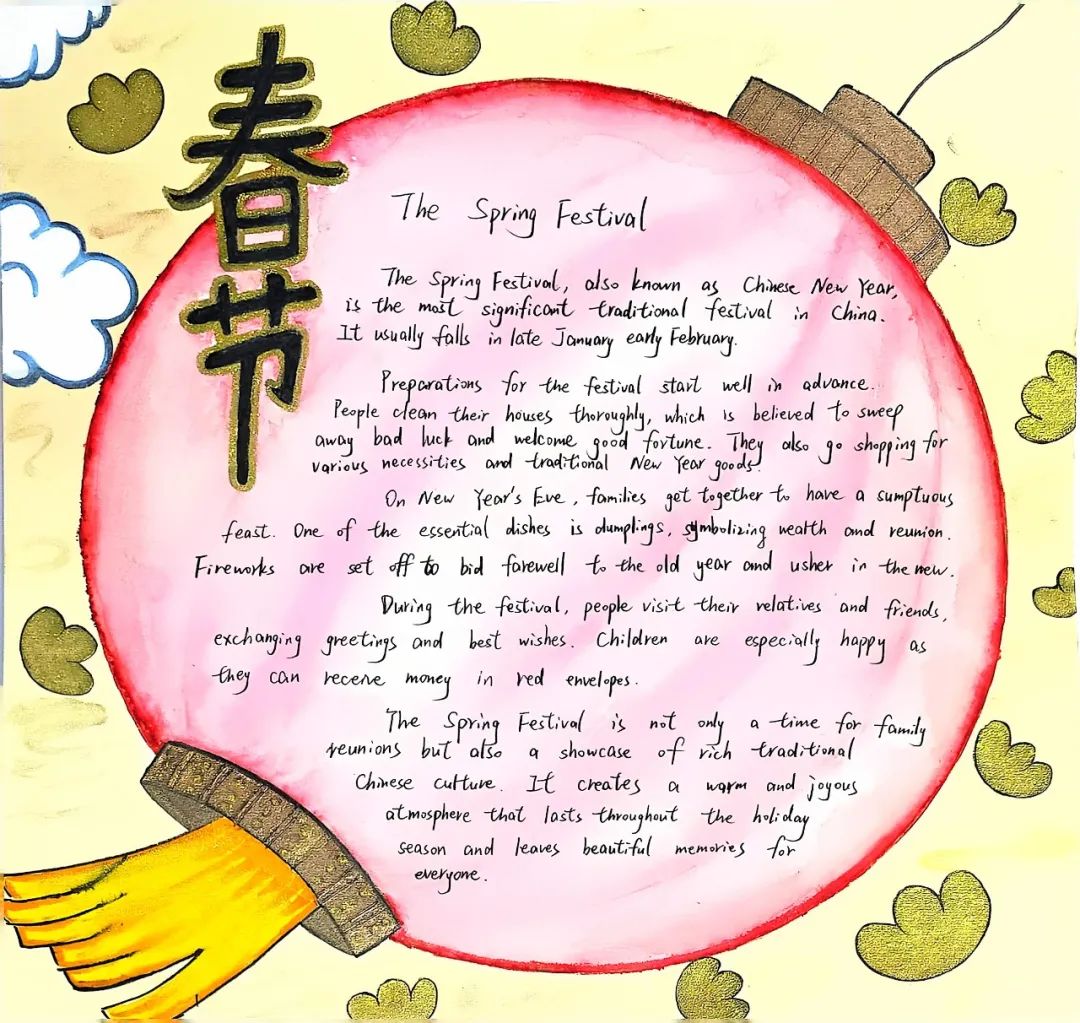 春节
The Spring Festival
The Spring Festival, also known as Chinese New Year,
is the most significant traditional festival in China.
It usually falls in late January early February.
Preparations for the festival start well in advance.
People clean their houses thoroughly, which is believed to sweep
away bad luck and welcome good fortune. They also go shopping for
various necessities and traditional New Year goods.
On New Year's Eve, families get together to have a sumptuous
feast. One of the essential dishes is dumplings, symbolizing wealth and reunion.
Fireworks are set off to bid farewell to the old year and usher in the new.
During the festival, people visit their relatives and friends,
exchanging greetings and best wishes. Children are especially happy as
they can receive money in red envelopes.
The Spring Festival is not only a time for family
reunions but also a showcase of rich traditional
Chinese culture. It creates a warm and joyous
atmosphere that lasts throughout the holiday
season and leaves beautiful memories for
everyone.